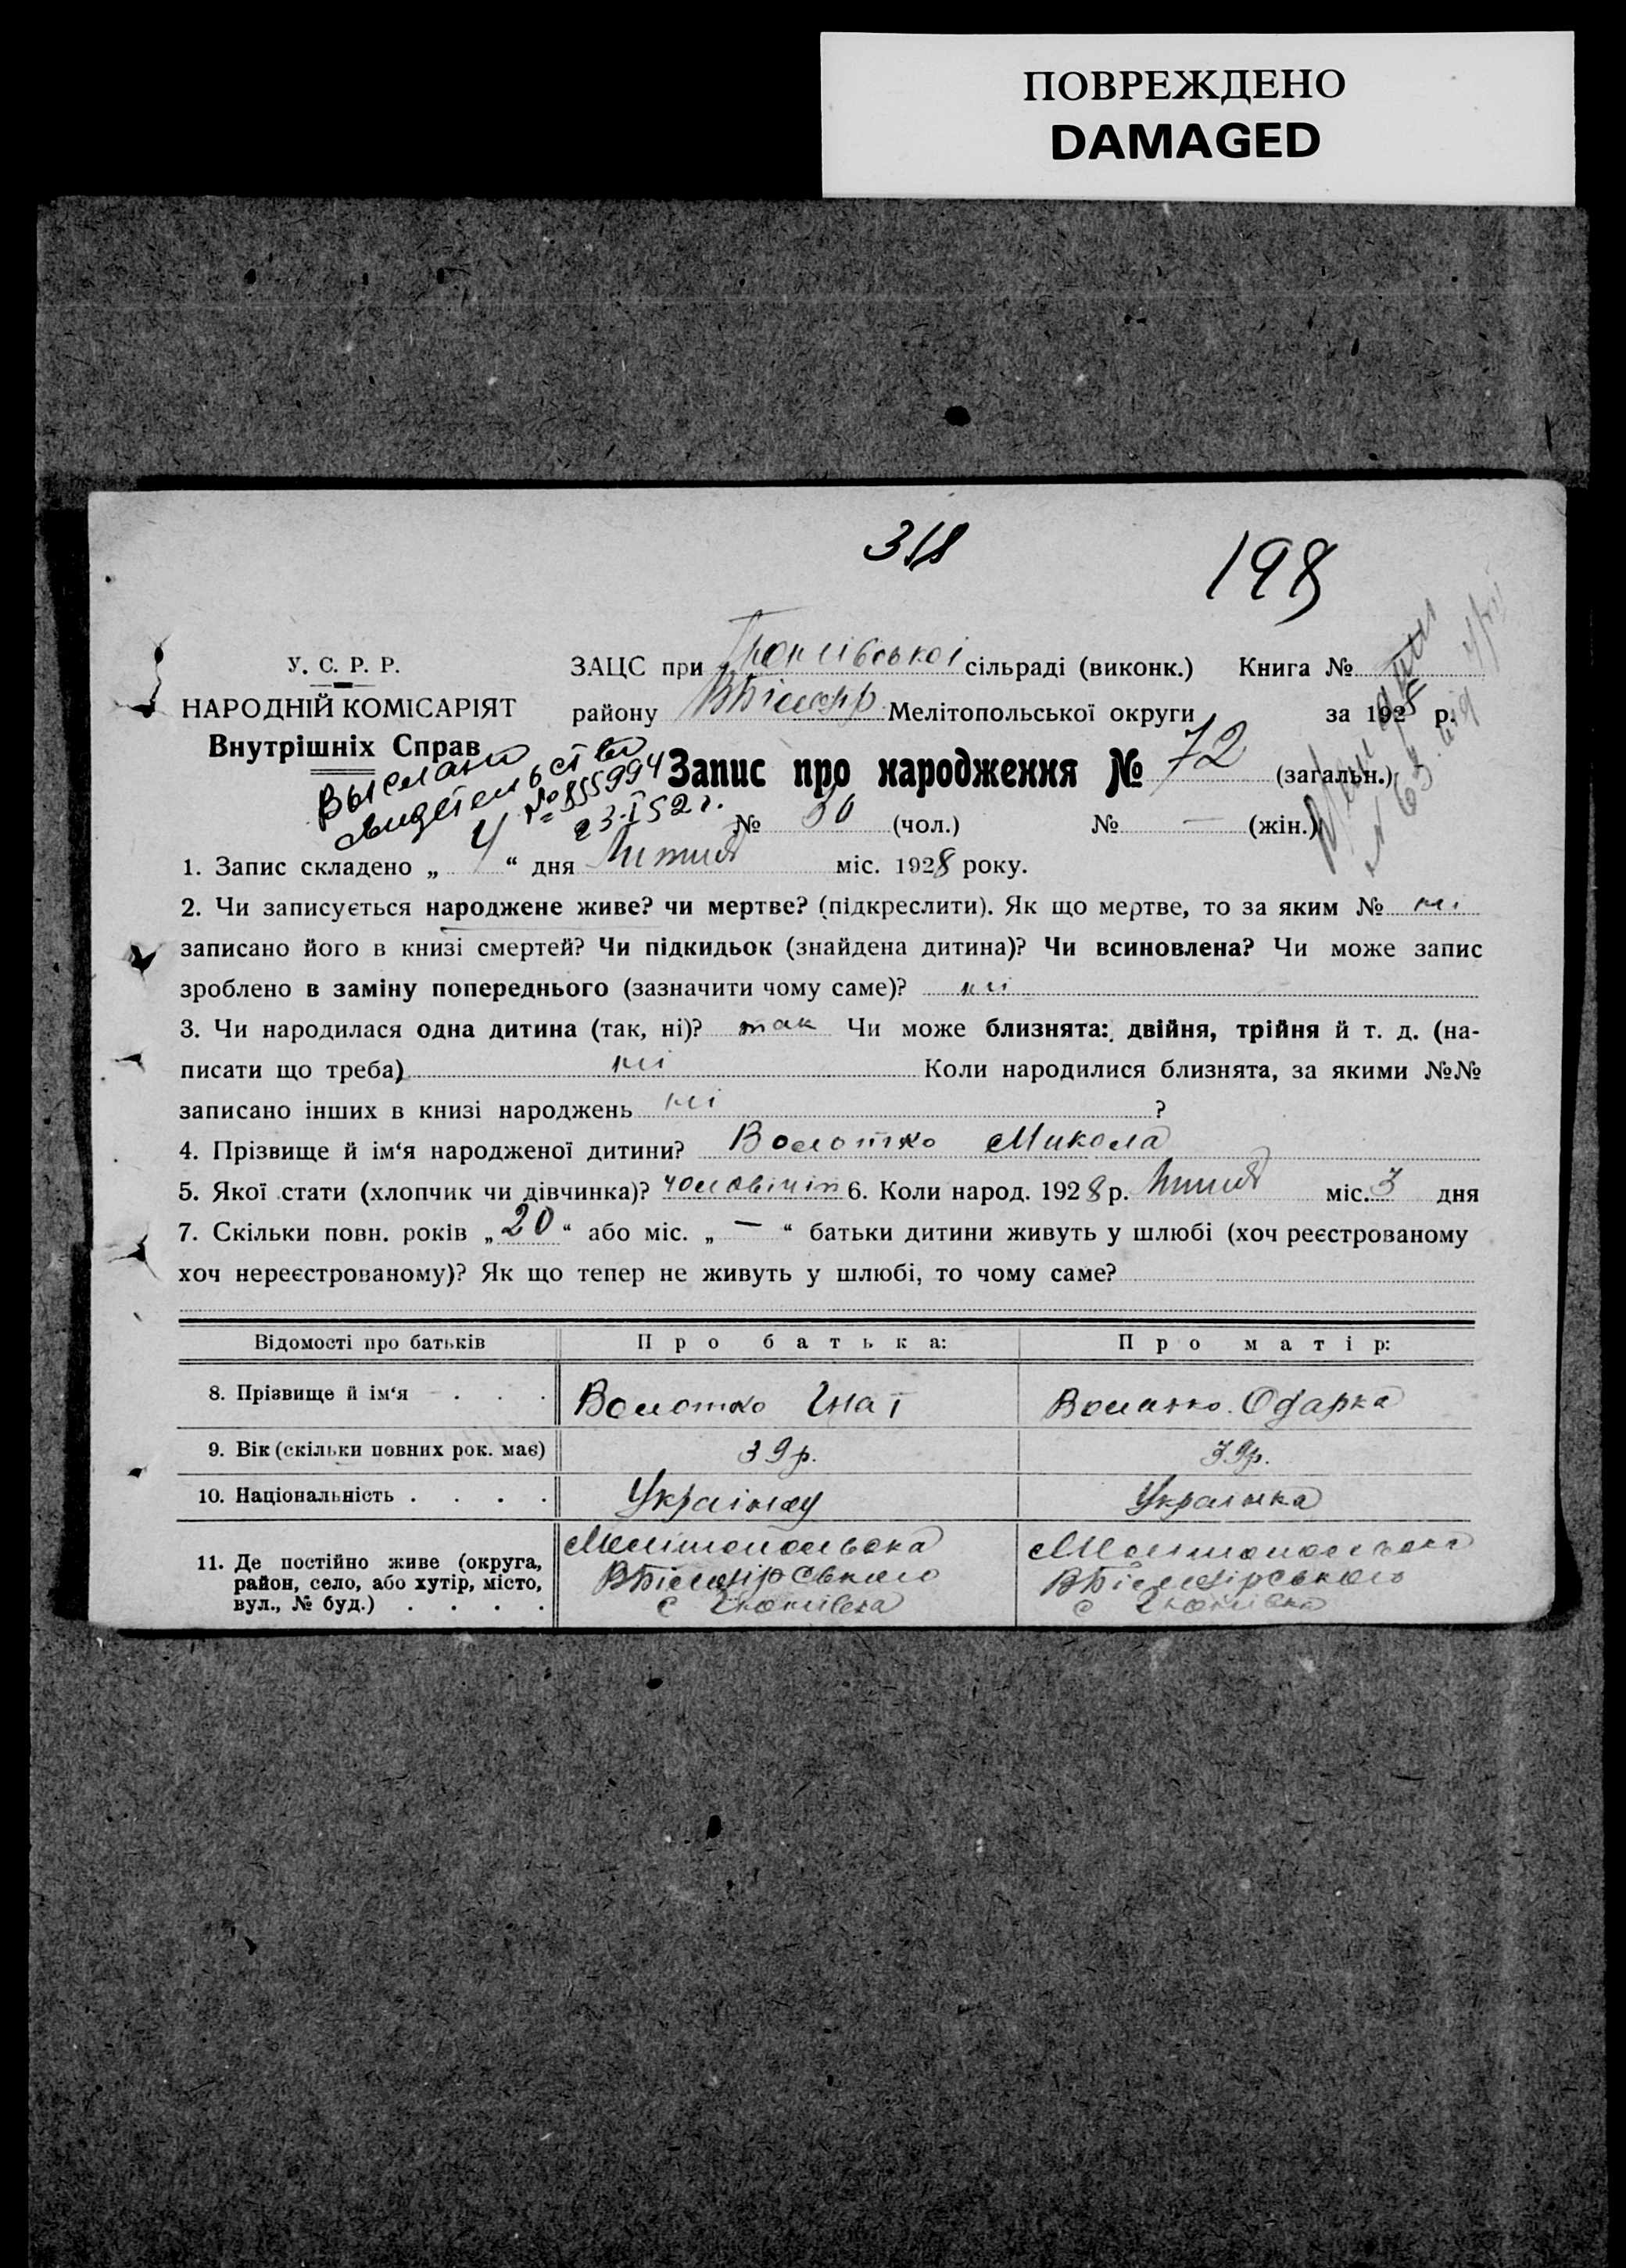 ПОВРЕЖДЕНО
DAMAGED
318
198
У. С. Р. Р.
НАРОДНІЙ КОМІСАРІЯТ
Внутрішніх Справ
Выслано
свидетельство
№ 855994
23.I 52 г.
ЗАЦС при сільраді (виконк.) Книга №
району Мелітопольської округи за 1928 р.
Запис про народження № 72 (загальн.)
№ 30 (чол.) № — (жін.)
1. Запис складено „ 4 “ дня Липня міс. 1928 року.
2. Чи записується народжене живе? чи мертве? (підкреслити). Як що мертве, то за яким № ні
записано його в книзі смертей? Чи підкидьок (знайдена дитина)? Чи всиновлена? Чи може запис
зроблено в заміну попереднього (зазначити чому саме)? ні
3. Чи народилася одна дитина (так, ні)? так Чи може близнята: двійня, трійня й т. д. (на-
писати що треба) ні Коли народилися близнята, за якими №№
записано інших в книзі народжень ні ?
4. Прізвище й ім‘я народженої дитини? Волотко Микола
5. Якої стати (хлопчик чи дівчинка)? 6. Коли народ. 1928 р. Липня міс. 3 дня
7. Скільки повн. років „ 20 “ або міс. „ — “ батьки дитини живуть у шлюбі (хоч реєстрованому
хоч нереєстрованому)? Як що тепер не живуть у шлюбі, то чому саме?
Відомості про батьків Про батька: Про матір:
8. Прізвище й ім‘я . . . Волотко Гнат Волотко Одарка
9. Вік (скільки повних рок. має) 39 р. 39 р.
10. Національність . . . . Українец Українка
11. Де постійно живе (округа,
район, село, або хутір, місто,
вул., № буд.) . . . .
Мелітопольська
ВБілозірського
с
Мелітопольська
ВБілозірського
с